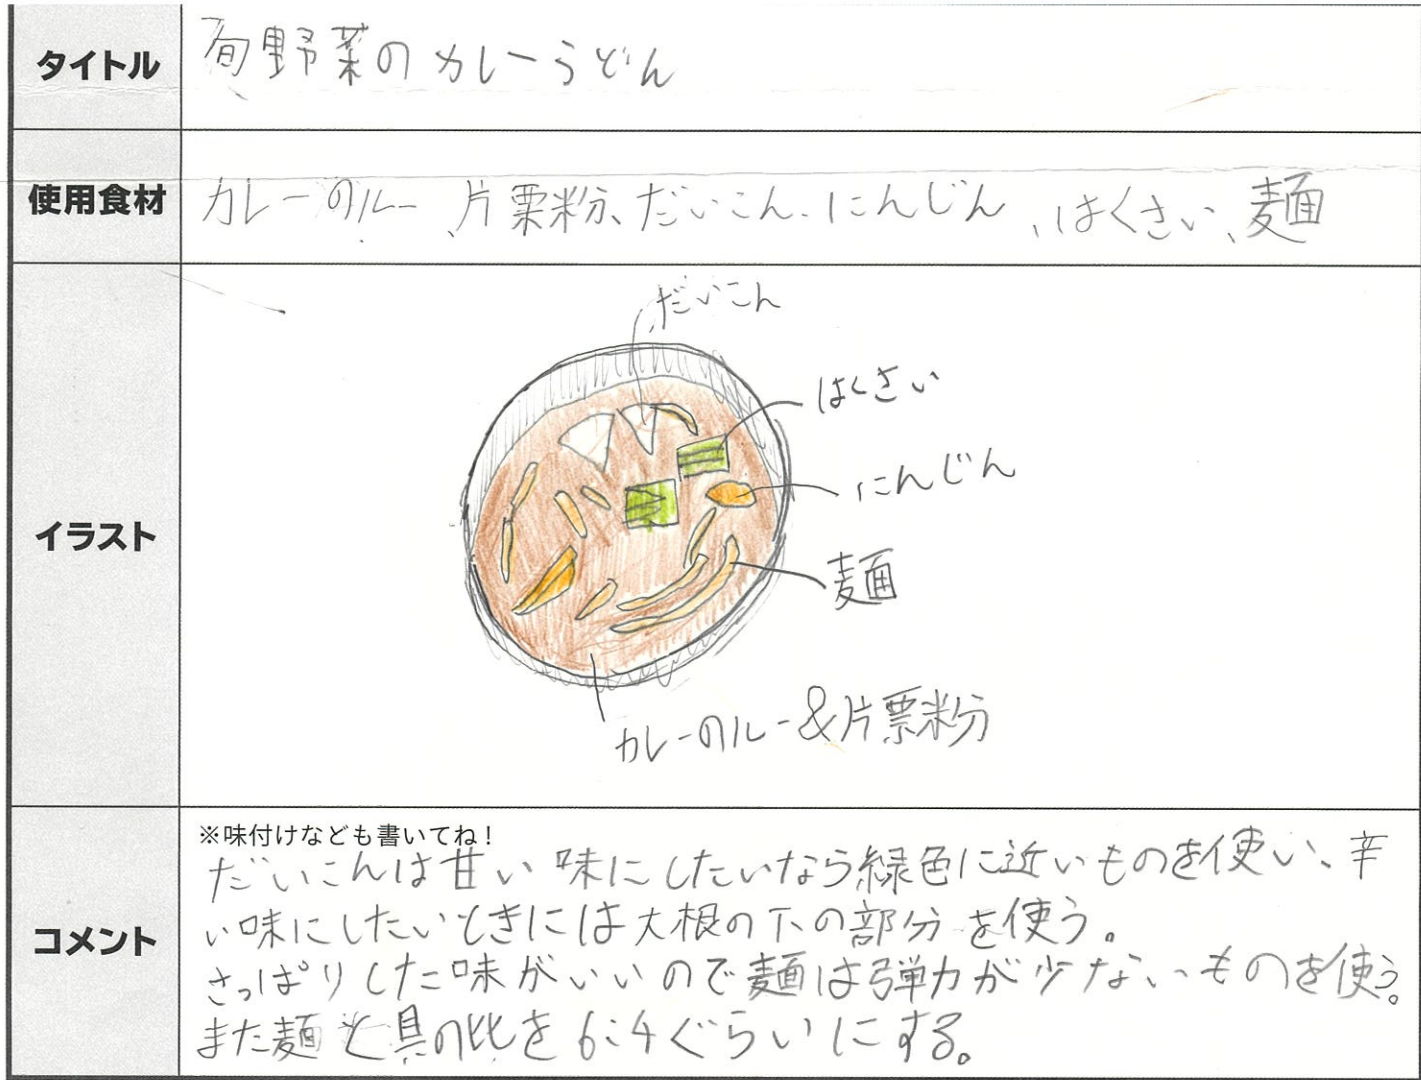 タイトル
旬野菜のカレーうどん
使用食材
カレーのルー、片栗粉、だいこん、にんじん、はくさい、麺
イラスト
だいこん
はくさい
にんじん
麺
カレーのルー&片栗粉
コメント
※味付けなども書いてね!
だいこんは甘い味にしたいなら緑色に近いものを使い、辛
い味にしたいときには大根の下の部分を使う。
さっぱりした味がいいので麺は弾力が少ないものを使う。
また麺と具の比を6:4ぐらいにする。